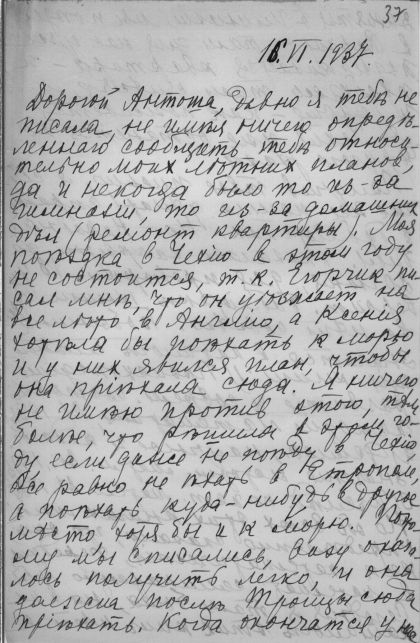 37
16.VI.1937.
Дорогой Антоша, давно я тебѣ не
писала, не имѣя ничего опредѣ
леннаго сообщить тебѣ относи-
тельно моих лѣтних планов,
да и некогда было то из-за
гимназіи, то из-за домашних
дѣл (ремонт квартиры). Моя
поѣздка в Чехію в этом году
не состоится, т.к. Егорчик пи
сал мнѣ, что он уѣзжает на
все лѣто в Англію, а Ксенія
хотѣла бы поѣхать к морю
и у них явился план, чтобы
она пріѣхала сюда. Я ничего
не имѣю против этого, тѣм
болѣе, что рѣшила в этом го-
ду если даже не поѣду в Чехію
все равно не ѣхать в Етрополе,
а поѣхать куда-нибудь в другое
мѣсто хотя бы и к морю. Пото
му мы списались, визу оказа
лось получить легко, и она
должна послѣ Троицы сюда
пріѣхать. Когда окончатся у